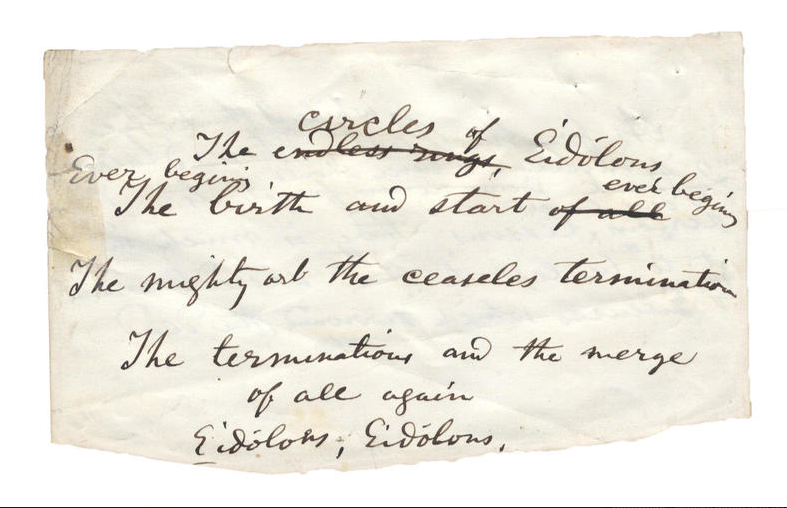 circles of
The endless rings, Eidólons
Ever begins ever begins
The birth and start of all
The mighty orb the ceaseles termination
The terminations and the merge
of all again
Eidólons, Eidólons,